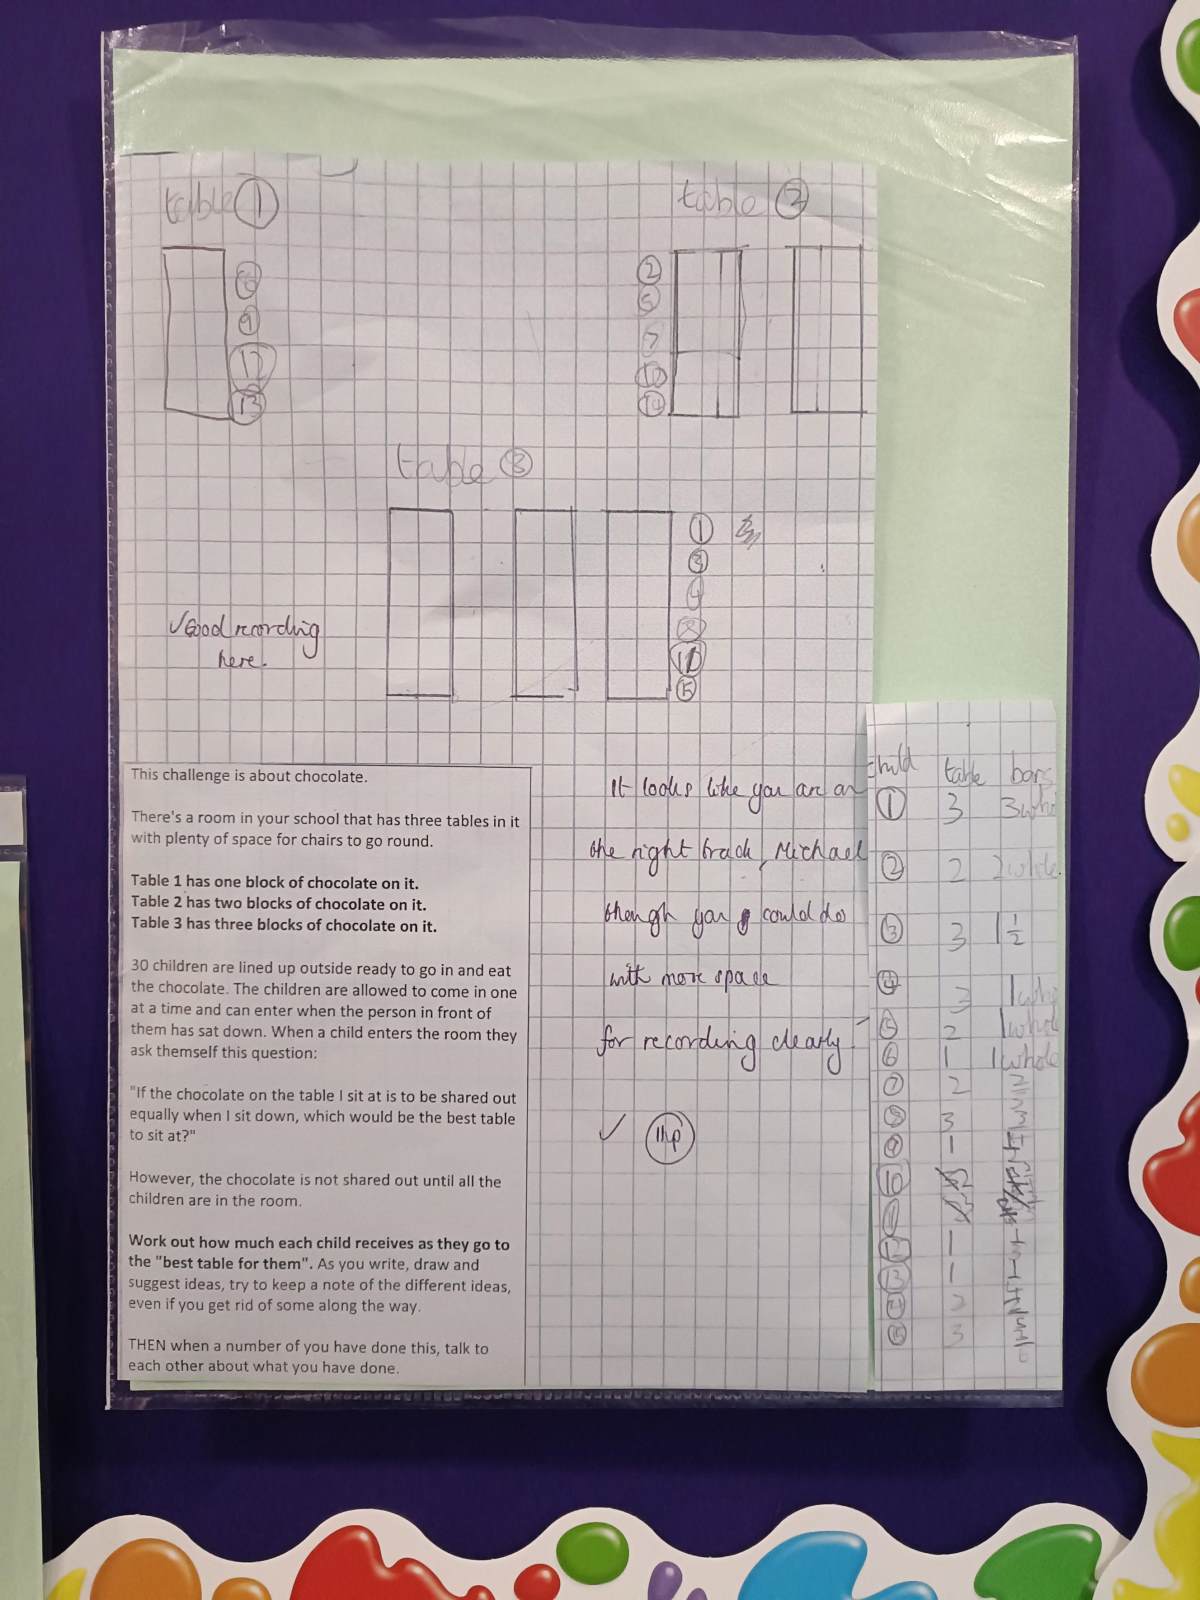 table ①
table ②
⑨
⑬
②
⑤
⑦
⑩
⑭
table ③
①
③
④
⑧
⑪
⑮
✓ Good recording
here.
This challenge is about chocolate.
There's a room in your school that has three tables in it
with plenty of space for chairs to go round.
Table 1 has one block of chocolate on it.
Table 2 has two blocks of chocolate on it.
Table 3 has three blocks of chocolate on it.
30 children are lined up outside ready to go in and eat
the chocolate. The children are allowed to come in one
at a time and can enter when the person in front of
them has sat down. When a child enters the room they
ask themself this question:
"If the chocolate on the table I sit at is to be shared out
equally when I sit down, which would be the best table
to sit at?"
However, the chocolate is not shared out until all the
children are in the room.
Work out how much each child receives as they go to
the "best table for them". As you write, draw and
suggest ideas, try to keep a note of the different ideas,
even if you get rid of some along the way.
THEN when a number of you have done this, talk to
each other about what you have done.
It looks like you are on
the right track, Michael
though you could do
with more space
for recording clearly
✓ 1hp
child table bars
① 3 3 who
② 2 2 whole
③ 3 1 1/2
④ 3 1 who
⑤ 2 1 whole
⑥ 1 1 whole
⑦ 2
⑧ 3
⑨ 1
⑩
⑫ 1
⑬ 1
⑭ 2
⑮ 3